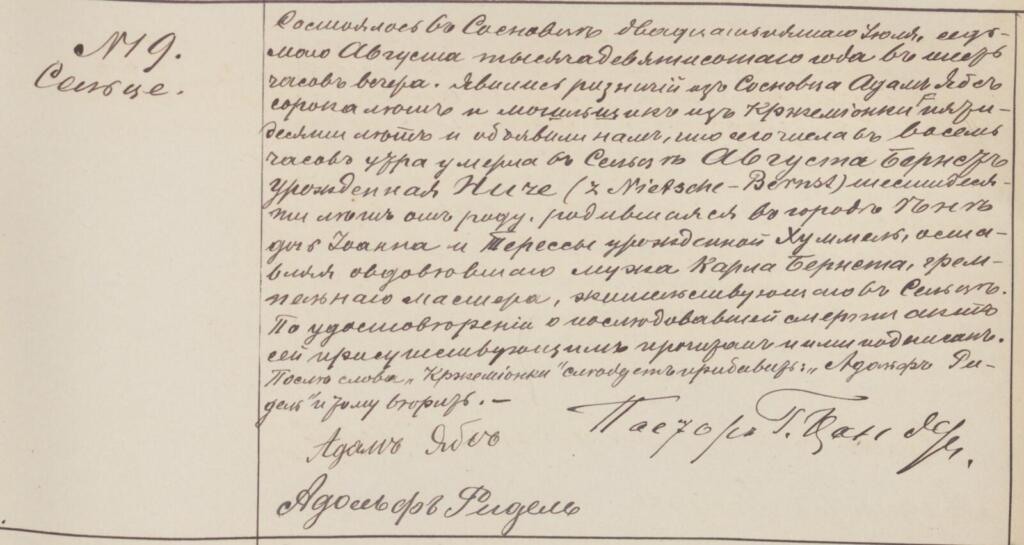 N 19.
Сельце.
Состоялось въ Сосновцѣ двадцать пятаго Іюля, седь-
мого Августа тысяча девятисотаго года въ шесть
часовъ вечера. Явились ризничій изъ Сосновца Адамъ Ябсъ
сорока лѣтъ и могильщикъ изъ Кржеміонки Г пяти-
десяти лѣтъ и объявили намъ, что сего числа въ восемь
часовъ утра умерла въ Сельцѣ Августа Бернстъ
урожденная Ниче (z Nietsche-Bernst) шестидеся-
ти лѣтъ отъ роду, родившаяся въ городѣ
дочь Іоанна и Терессы урожденной Хуммель, оста-
вляя овдовѣвшаго мужа Карла Бернста,
мастера, жительствующаго въ Сельцѣ.
По удостовѣреніи о послѣдовавшей смерти актъ
сей присутствующимъ прочитанъ и ими подписанъ.
Послѣ слова „Кржеміонки" слѣдуетъ прибавить: „Адольфъ Ри-
дель" и тому вторить. —
Адамъ Ябсъ
Пасторъ Г.
Адольфъ Ридель